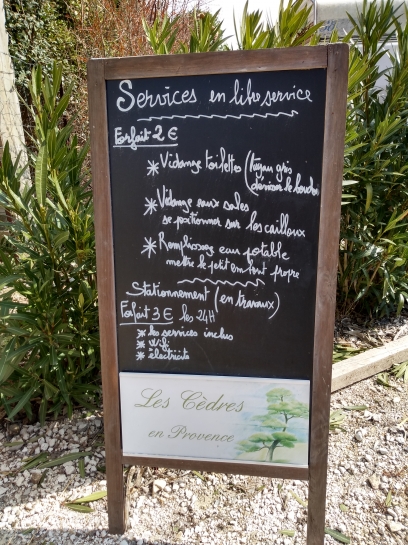 Services en libre service
Forfait 2 €
* Vidange toilettes (tuyau gris
derrière le bambou)
* Vidange eaux sales
se positionner sur les cailloux
* Remplissage eau potable
mettre le petit embout propre
Stationnement (en travaux)
Forfait 3 € les 24H
* les services inclus
* wifi
* électricité
Les Cèdres
en Provence